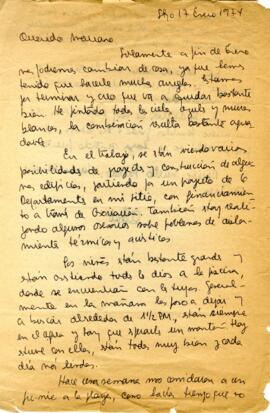 Stgo 17 Enero 1974
Querido Mariano
Solamente a fin de Enero
nos podremos cambiar de casa, ya que hemos
tenido que hacerle muchos arreglos. Estamos
por terminar y creo que va a quedar bastante
bien. He pintado todo los cielos azules y muros
blancos, la combinación resulta bastante agra
dable.
En el trabajo, se están viendo varias
posibilidades de proyecto y construcción de algu
nos edificios, partiendo ya un proyecto de
Departamentos en mi sitio, con financiamiento
a través de También estoy reali
zando algunos sobre problemas de aisla
miento térmico y acústico.
Los niños están bastante grandes y
están asistiendo todos los días a la piscina,
donde se encuentran con los tuyos. General
mente en la mañana los paso a dejar y
a buscar alrededor de 1½ PM, están siempre
en el agua y hay que esperarlos un montón. Hoy
estuve con ellos, están todos muy bien y cada
día más lindos.
Hace una semana nos convidaron a un
pic-nic a la playa, como hacía tiempo que no